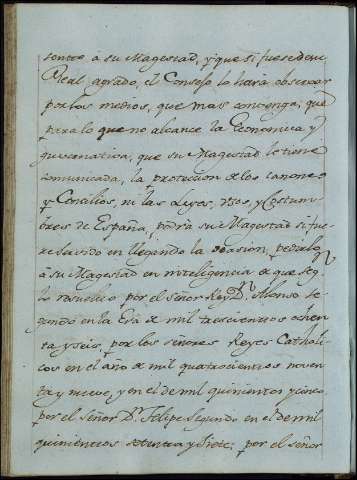 sentre à su Magestad, y que si fuese de su
Real agrado, el Consejo lo hará observar
por los medios, que mas convenga; que
para lo que no alcance la Economica y
guvernativa, que su Magestad le tiene
comunicada, la proteccion de los Canones
y Concilios, ni las Leyes, Usos, y Costum-
bres de España, podrà su Magestad si fue-
re servido en llegando la ocasion, pedirlo
à su Magestad en inteligencia de que seg.
lo resuelto por el Señor Rey Dn. Alonso se-
gundo en la Era de mil trescientos ochen
ta y seis, por los señores Reyes Catholi-
cos en el año de mil quatrocientos noven
ta y nueve, y en el de mil quinientos y cinco
por el Señor Dn. Felipe Segundo en el de mil
quinientos setenta y siete; por el señor